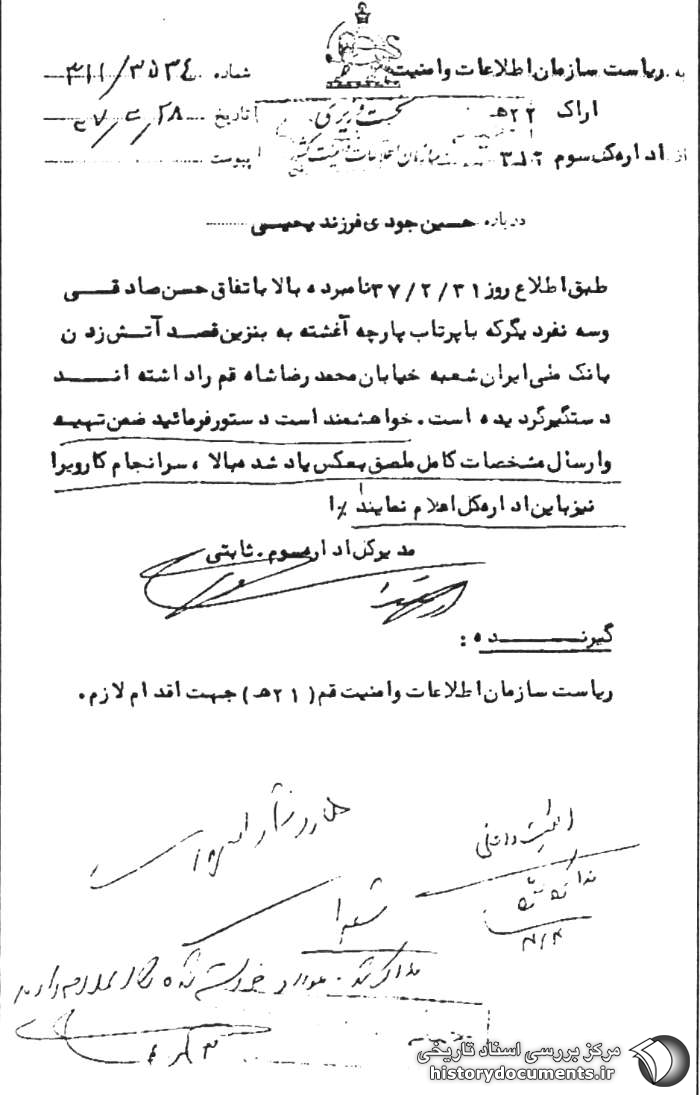 به ریاست سازمان اطلاعات وامنیت شماره ۳۱۱/۳۵۳۴
اراک ۲۲هـ نخست وزیری تاریخ
از اداره کل سوم ۳۱۲ سازمان اطلاعات و امنیت کشور پیوست
درباره حسین جودی فرزند یحیی
طبق اطلاع روز ۳۷/۲/۳۱ نامبرده بالا باتفاق حسن صادقی
وسه نفردیگرکه باپرتاب پارچه آغشته به بنزین قصد آتش زدن
بانک ملی ایران شعبه خیابان محمد رضاشاه قم راداشته اند
دستگیرگردیده است. خواهشمند است دستورفرمائید ضمن تهیه
وارسال مشخصات کامل ملصق بعکس یاد شده بالا، سرانجام کارویرا
نیزباین اداره کل اعلام نمایند ٪ا
مدیرکل اداره سوم. ثابتی
گیرنده:
ریاست سازمان اطلاعات وامنیت قم (۲۱هـ) جهت اقدام لازم.
امنیت داخلی
مذاکره شد
مذاکره شد. موارد خواسته شده
مرکز بررسی اسناد تاریخی
historydocuments.ir